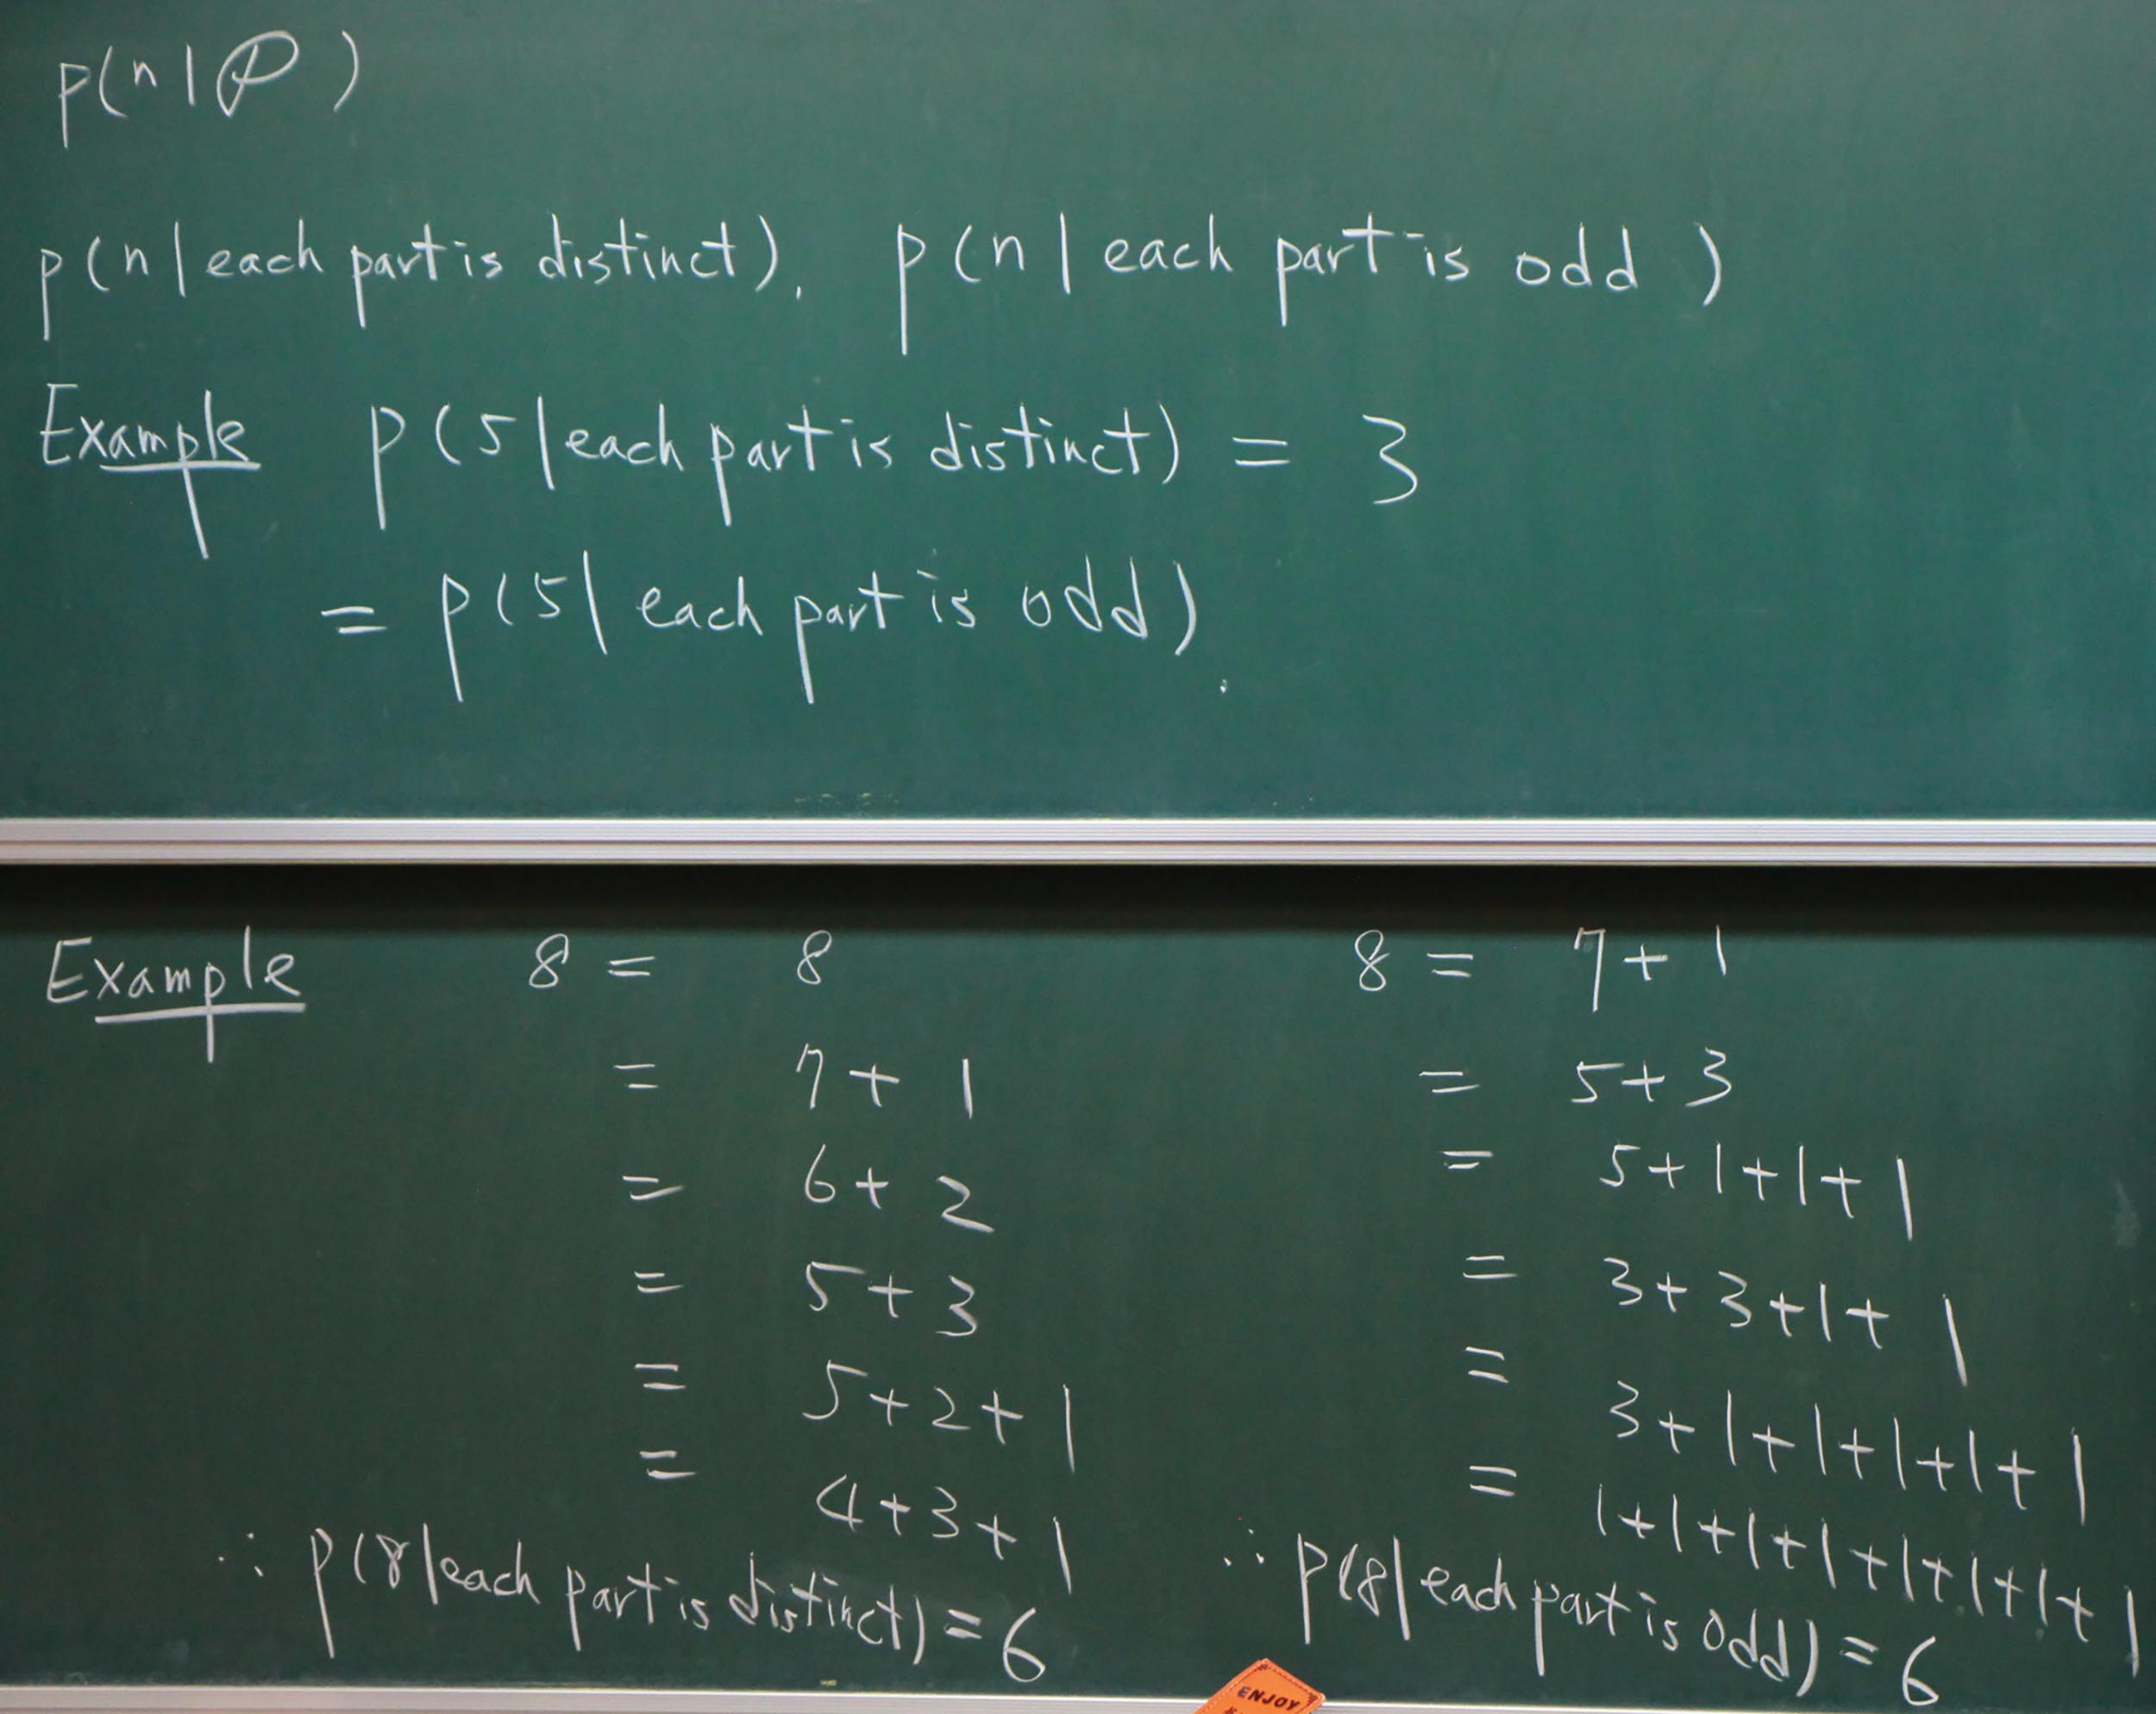 p(n|P)
p(n|each part is distinct), p(n|each part is odd)
Example p(5|each part is distinct) = 3
= p(5|each part is odd).
Example 8 = 8
= 7+1
= 6+2
= 5+3
= 5+2+1
= 4+3+1
∴ p(8|each part is distinct) = 6
8 = 7+1
= 5+3
= 5+1+1+1
= 3+3+1+1
= 3+1+1+1+1+1
= 1+1+1+1+1+1+1+1
∴ p(8|each part is odd) = 6
ENJOY